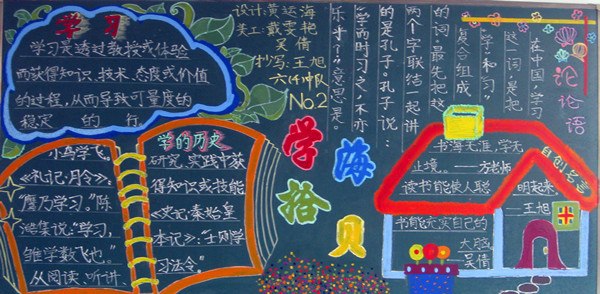 学习
学习是透过教授或体验
而获得知识、技术、态度或价值
的过程,从而导致可量度的
稳定 的 行
设计:黄运海
美工:戴雯艳
吴倩
抄写:王旭
中队
No.2
小鸟学飞。
《礼记·月令》:
"鹰乃学习。"陈
澔集说:"学习,
雏学数飞也。"
从阅读、听讲、
学的历史
研究、实践中获
得知识或技能
《史记·秦始皇
本记》:"士则学
习法令。"
学海拾贝
论论语
在中国,"学习
这一词,是把
"学"和"习"
复合组成
的词。最先把这
两个字联结一起讲
的是孔子。孔子说:
"学而时习之,不亦
乐乎?"意思是。
自创名言
书海无涯,学无
止境。——方老师
读书能使人聪明起来。
——王旭
书能充实自己的
大脑。
——吴倩